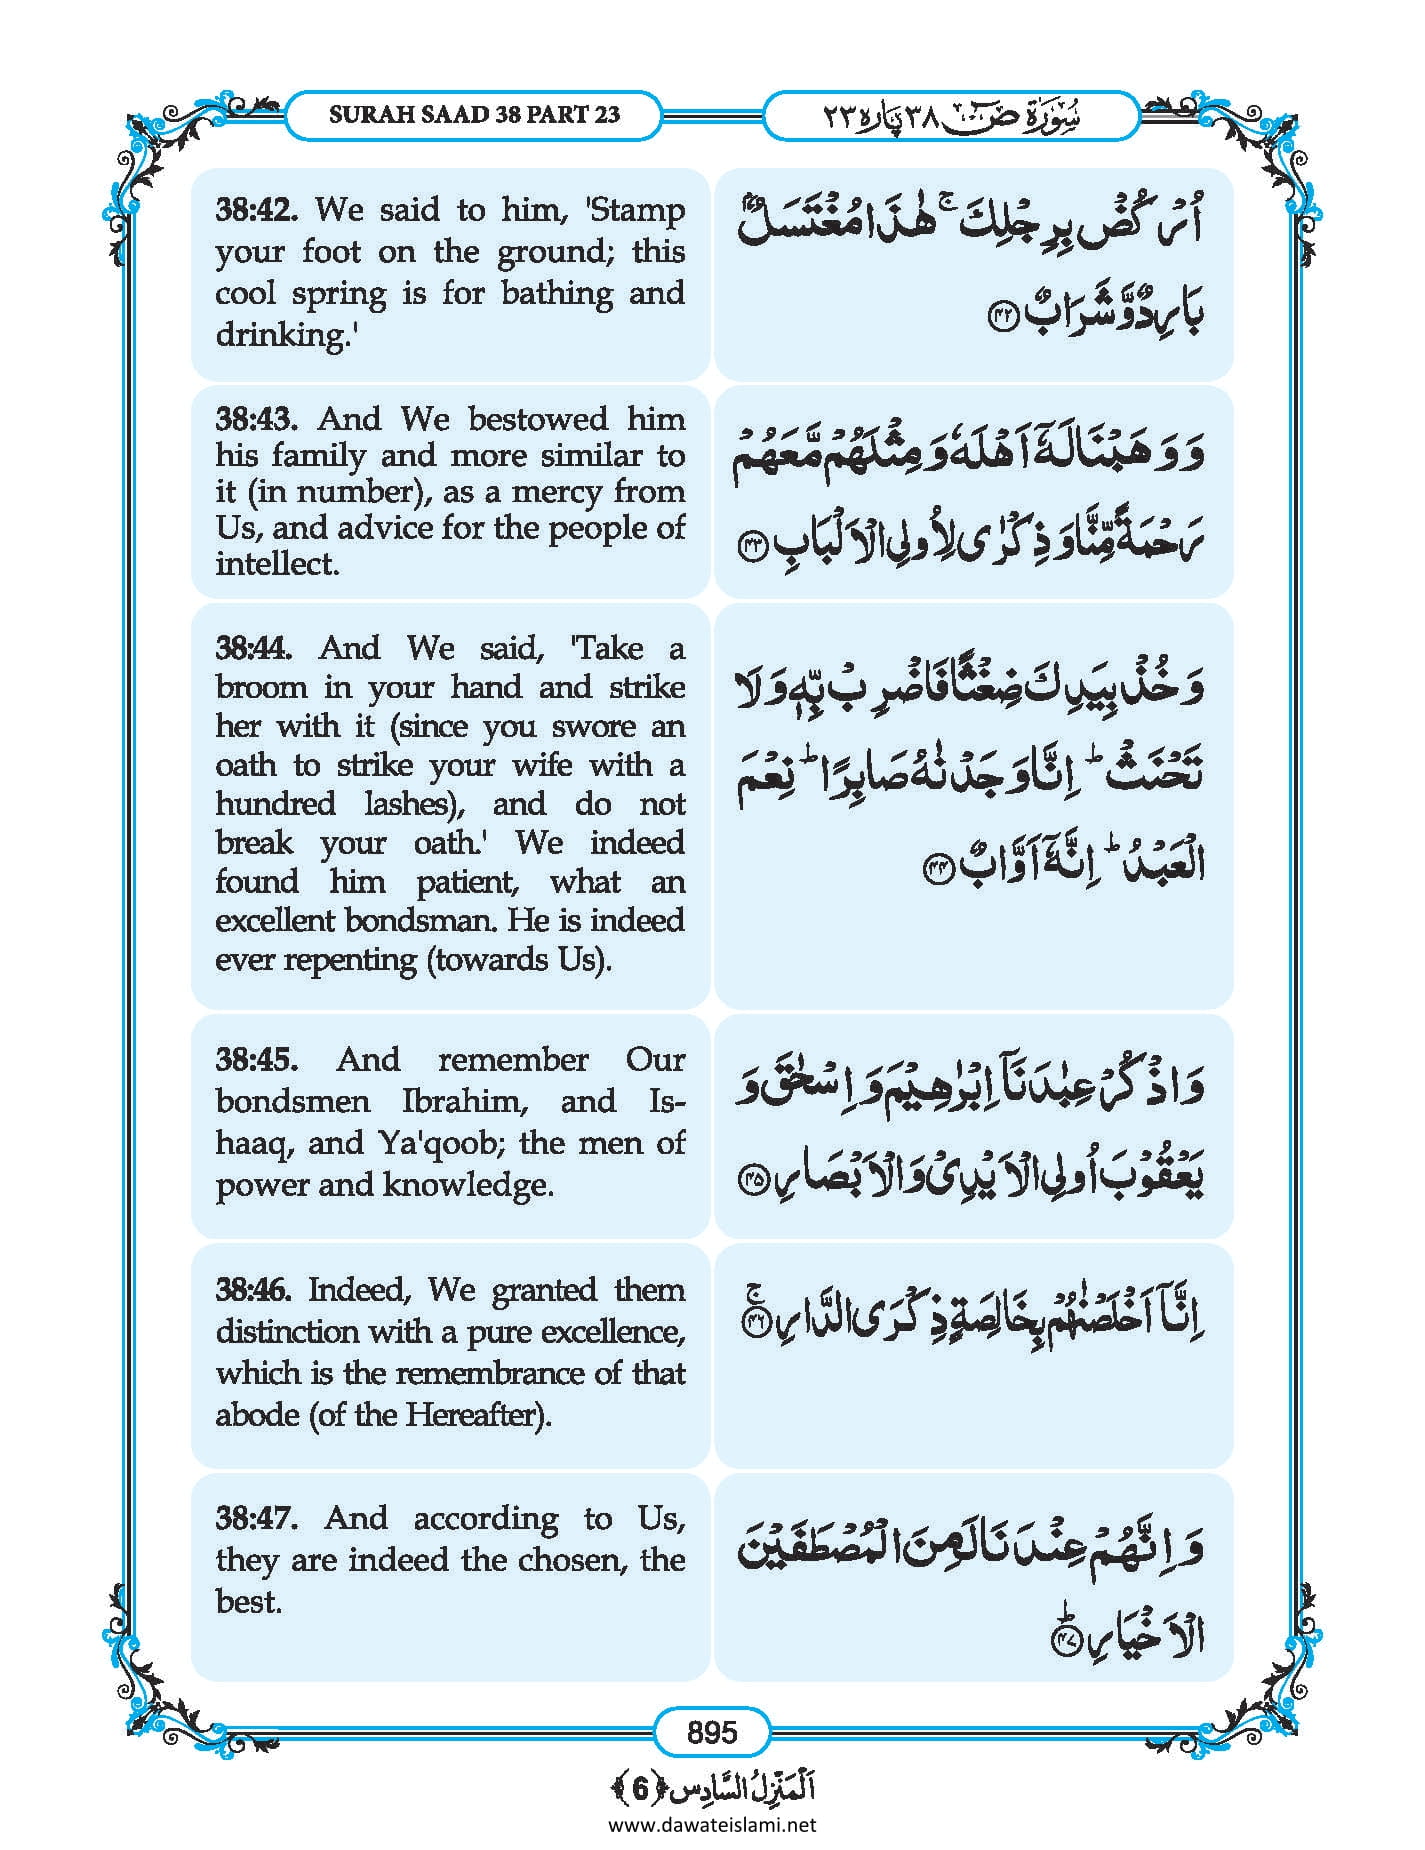 SURAH SAAD 38 PART 23
سُوۡرَةُ صٓ ٣٨ پاره ٢٣
38:42. We said to him, 'Stamp
your foot on the ground; this
cool spring is for bathing and
drinking.'
اُرۡكُضۡ بِرِجۡلِكَ ۚ هٰذَا مُغۡتَسَلٌۢ
بَارِدٌ وَّ شَرَابٌ ﴿۴۲﴾
38:43. And We bestowed him
his family and more similar to
it (in number), as a mercy from
Us, and advice for the people of
intellect.
وَ وَهَبۡنَا لَهٗۤ اَهۡلَهٗ وَ مِثۡلَهُمۡ مَّعَهُمۡ
رَحۡمَةً مِّنَّا وَ ذِكۡرٰى لِاُولِى الۡاَلۡبَابِ ﴿۴۳﴾
38:44. And We said, 'Take a
broom in your hand and strike
her with it (since you swore an
oath to strike your wife with a
hundred lashes), and do not
break your oath.' We indeed
found him patient, what an
excellent bondsman. He is indeed
ever repenting (towards Us).
وَ خُذۡ بِيَدِكَ ضِغۡثًا فَاضۡرِبۡ بِّهٖ وَ لَا
تَحۡنَثۡ ؕ اِنَّا وَجَدۡنٰهُ صَابِرًا ؕ نِعۡمَ
الۡعَبۡدُ ؕ اِنَّهٗۤ اَوَّابٌ ﴿۴۴﴾
38:45. And remember Our
bondsmen Ibrahim, and Is-
haaq, and Ya'qoob; the men of
power and knowledge.
وَ اذۡكُرۡ عِبٰدَنَاۤ اِبۡرٰهِيۡمَ وَ اِسۡحٰقَ وَ
يَعۡقُوۡبَ اُولِى الۡاَيۡدِىۡ وَ الۡاَبۡصَارِ ﴿۴۵﴾
38:46. Indeed, We granted them
distinction with a pure excellence,
which is the remembrance of that
abode (of the Hereafter).
اِنَّاۤ اَخۡلَصۡنٰهُمۡ بِخَالِصَةٍ ذِكۡرَى الدَّارِ ﴿۴۶﴾ۚ
38:47. And according to Us,
they are indeed the chosen, the
best.
وَ اِنَّهُمۡ عِنۡدَنَا لَمِنَ الۡمُصۡطَفَيۡنَ
الۡاَخۡيَارِ ﴿۴۷﴾ؕ
895
اَلۡمَنۡزِلُ السَّادِس ﴿6﴾
www.dawateislami.net